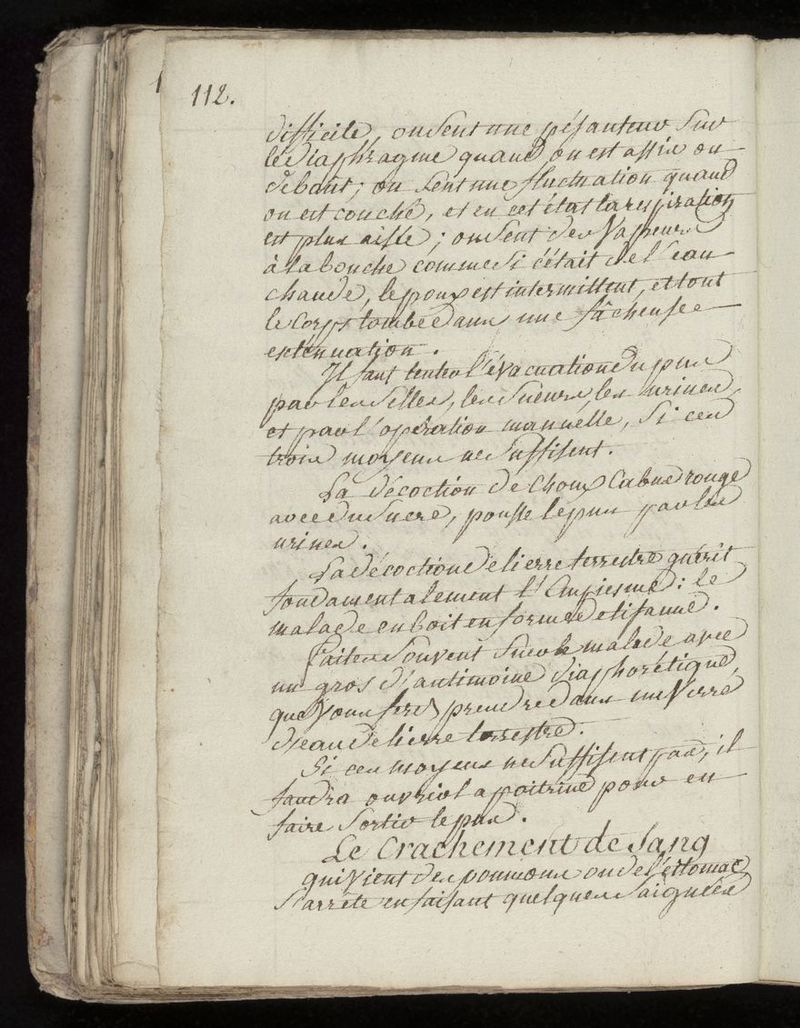 112.
difficile, on sent une pésanteur sur
le diaphragme quand on est assis ou
debout; on sent une fluctuation quand
on est couché, et en cet état la respiration
est plus aisée; on sent des Vapeurs
à la bouche comme si c'était de l'eau
chaude, le poux est intermittent, et tout
le Corps tombe dans une fâcheuse
exténuation.
Il faut tenter l'évacuation du pus
par les selles, les sueurs, les urines,
et par l'opération manuelle, si ces
trois moyens ne suffisent.
La décoction de Choux Cabus rouge
avec du Sucre, pousse le pus par les
urines.
La décoction de lierre terrestre guérit
fondamentalement l'Empiesme: le
malade en boit en forme de tisanne.
Faites souvent suer le malade avec
un gros d'antimoine diaphorétique,
que Vous ferés prendre dans un Verre
d'eau de lierre terrestre.
Si ces moyens ne suffisent pas, il
faudra ouvrir la poitrine pour en
faire sortir le pus.
Le Crachement de Sang
qui Vient des poumons ou de l'estomac
s'arrête en faisant quelques saignées